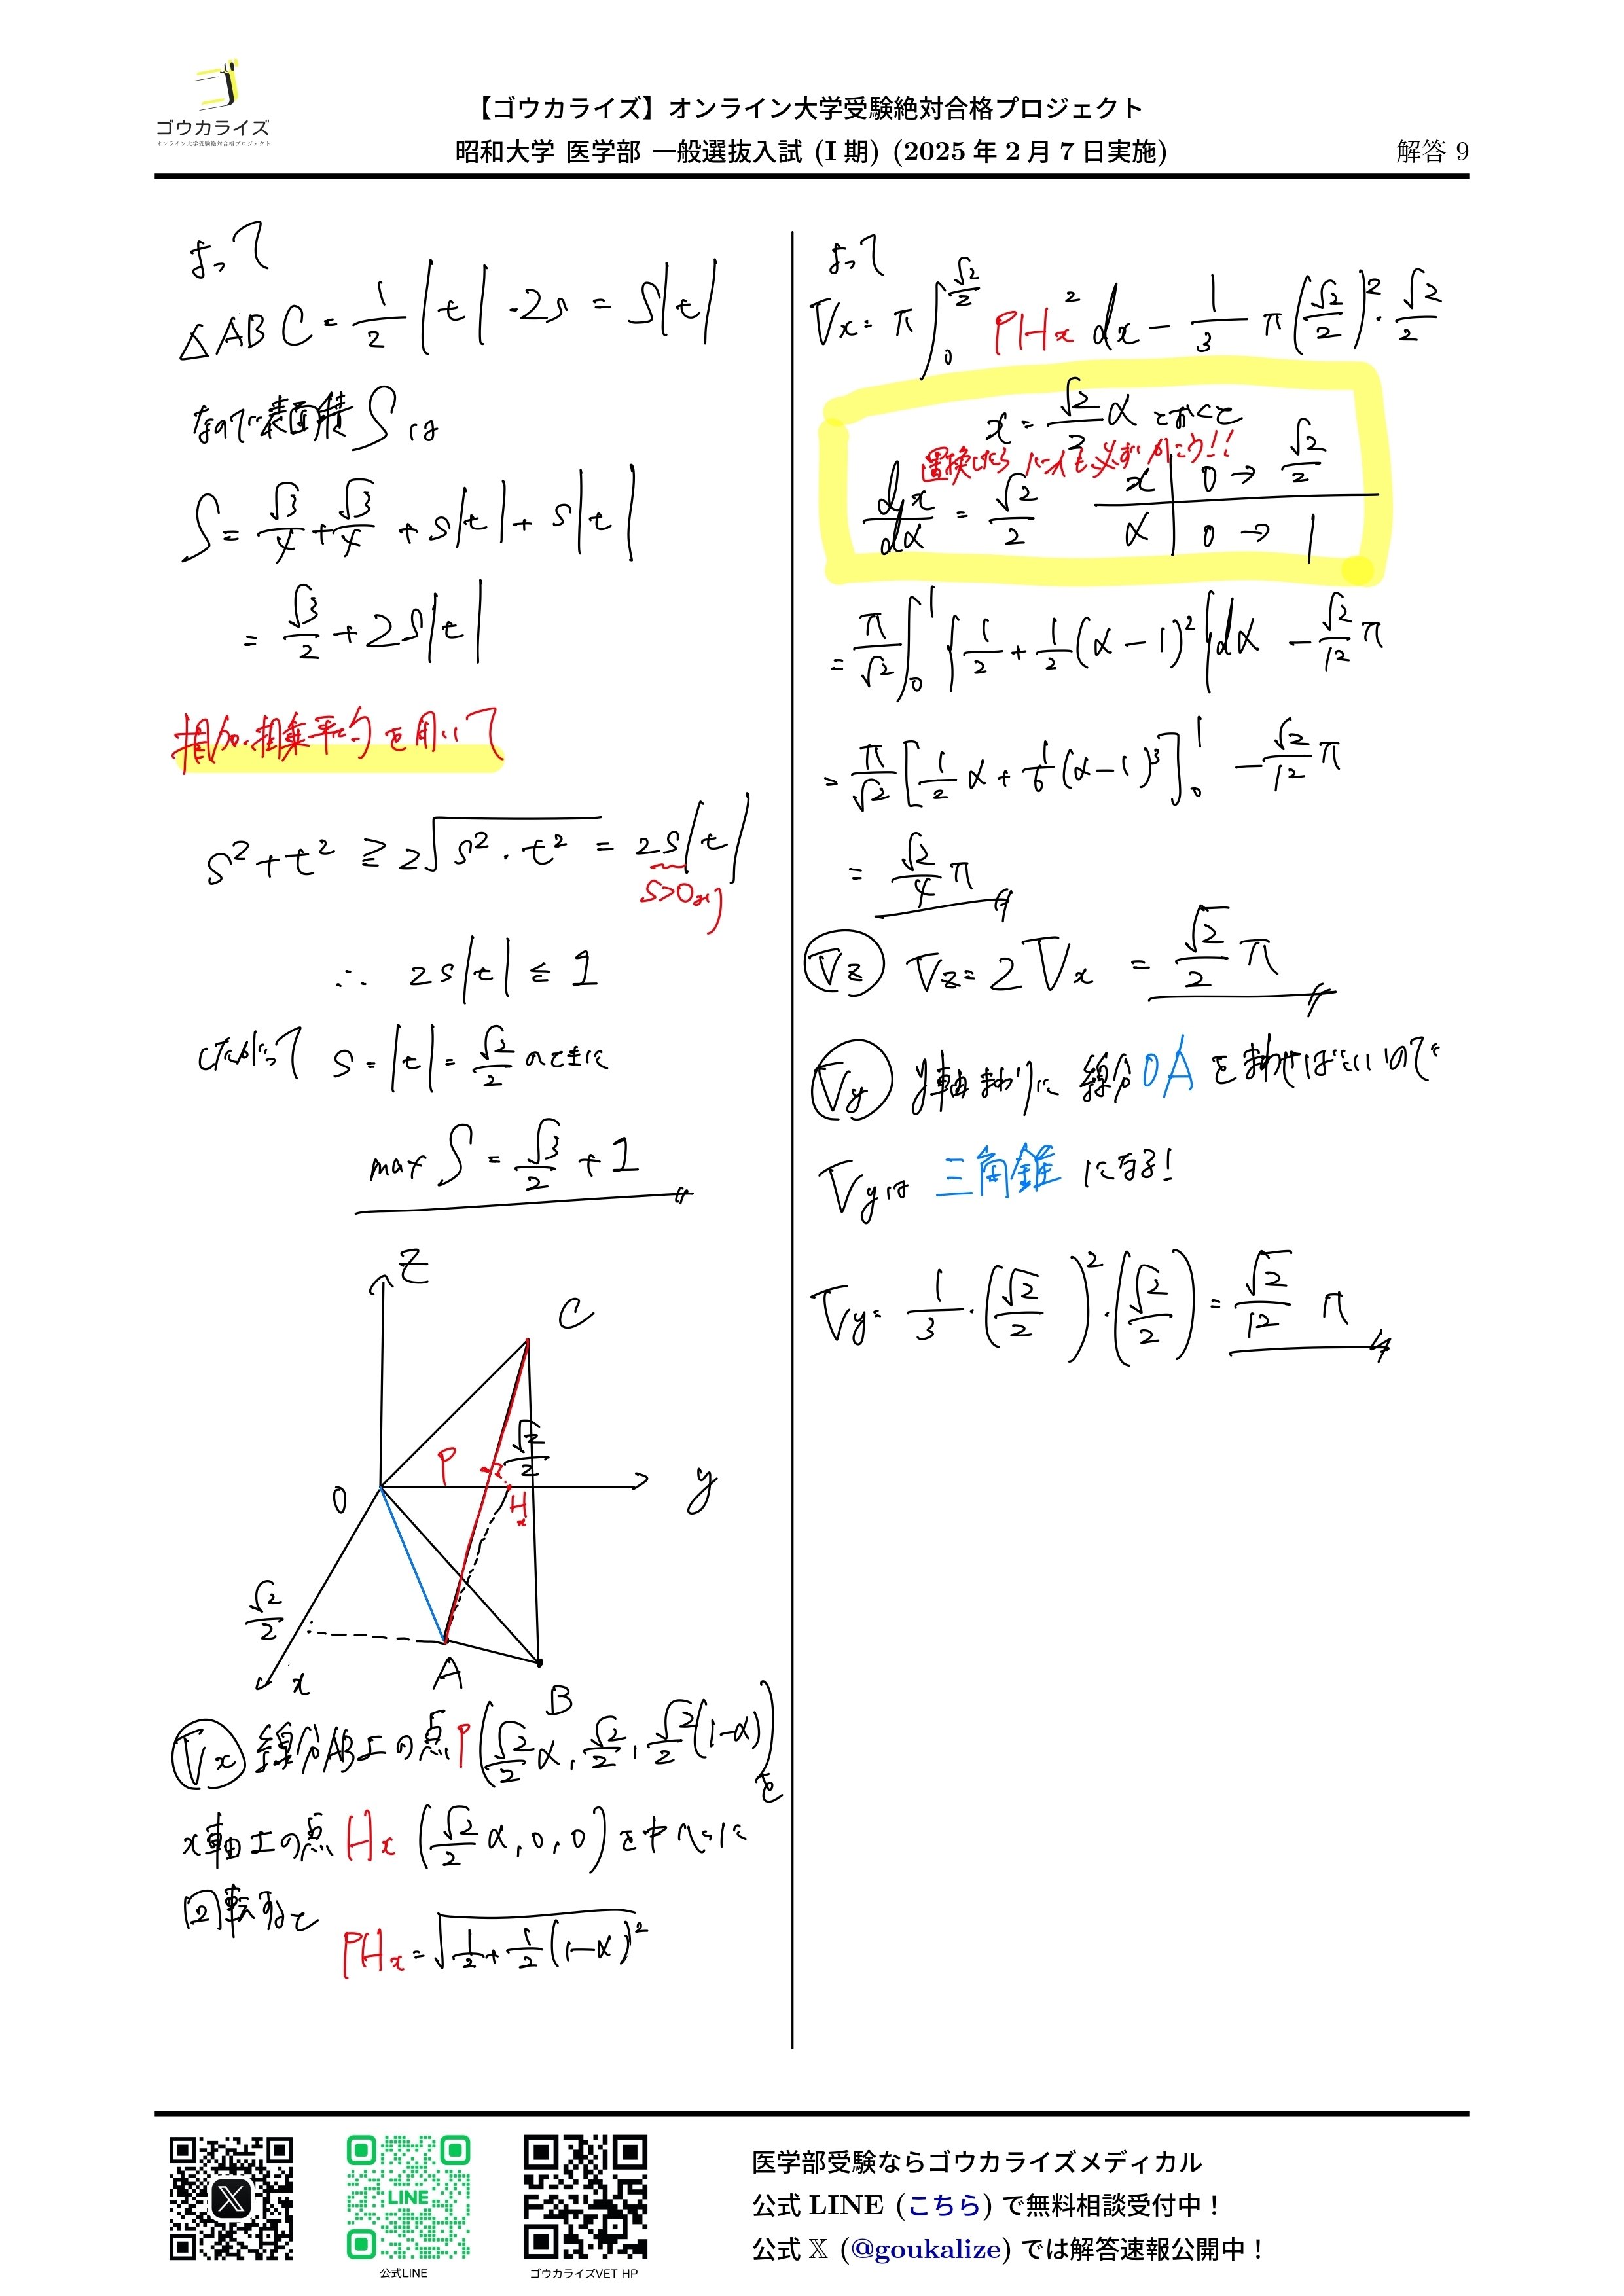 ゴウカライズ
オンライン大学受験絶対合格プロジェクト
【ゴウカライズ】オンライン大学受験絶対合格プロジェクト
昭和大学 医学部 一般選抜入試 (I 期) (2025 年 2 月 7 日実施)
解答 9
よって
△ABC = 1/2 |t|・2s = s|t|
なので表面積 S は
S = √3/4 + √3/4 + s|t| + s|t|
= √3/2 + 2s|t|
相加・相乗平均を用いて
s² + t² ≧ 2√(s²・t²) = 2s|t|
s>0より
∴ 2s|t| ≦ 1
したがって s = |t| = √2/2 のときに
max S = √3/2 + 1
z
C
P
√2/2
O
Hx
y
√2/2
x
A
B
Vx 線分AB上の点P(√2/2 α, √2/2, √2/2(1-α))を
x軸上の点 Hx (√2/2 α, 0, 0)を中心に
回転すると
PHx = √(1/2 + 1/2(1-α)²)
よって
Vx = π∫₀^(√2/2) PHx² dx - 1/3 π(√2/2)²・√2/2
x = √2/2 α とおくと
置換したら ハンイも必ずかこう!!
dx/dα = √2/2
x | 0 → √2/2
α | 0 → 1
= π/√2 ∫₀¹ {1/2 + 1/2(α-1)²}dα - √2/12 π
= π/√2 [1/2 α + 1/6(α-1)³]₀¹ - √2/12 π
= √2/4 π
Vz Vz = 2Vx = √2/2 π
Vy y軸まわりに 線分OA をまわせばいいので
Vyは 三角錐 になる!
Vy = 1/3・(√2/2)²・(√2/2) = √2/12 π
LINE
公式LINE
ゴウカライズVET HP
医学部受験ならゴウカライズメディカル
公式 LINE (こちら) で無料相談受付中！
公式 𝕏 (@goukalize) では解答速報公開中！